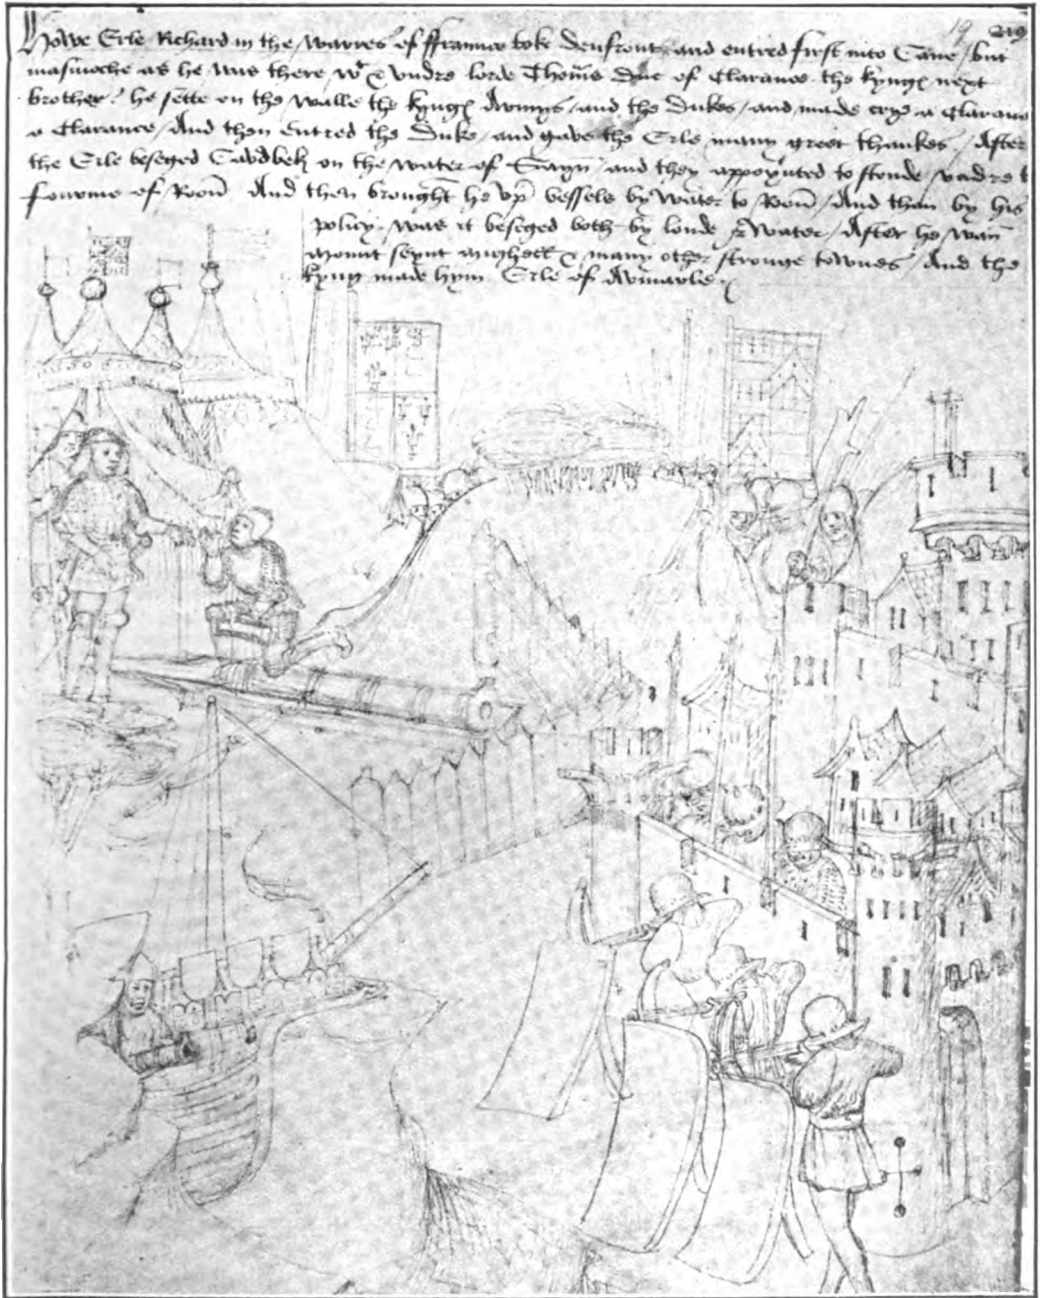 Howe Erle Richard in the warres of ffraunce toke Denfront and entred first into Cane / but
masmoche as he was there wt & undre lorde Thomas Duc of Clarance the kyngs next
brother / he sette on the walle the kyngs Armys / and the Dukes / and made crye a Claraunce
a Clarance / And then entred the Duke / and gave the Erle many greet thankes / After
the Erle beseged Cawdbek on the water of Sayn / and they appoynted to stonde undre t
fourme of Roon And then brought he up vessels by water to Roon / And than by his
policy was it beseged both by londe & Water / After he wan
Mount Seynt Mighell & many other stronge townes / And the
kyng made hym Erle of Aumarle